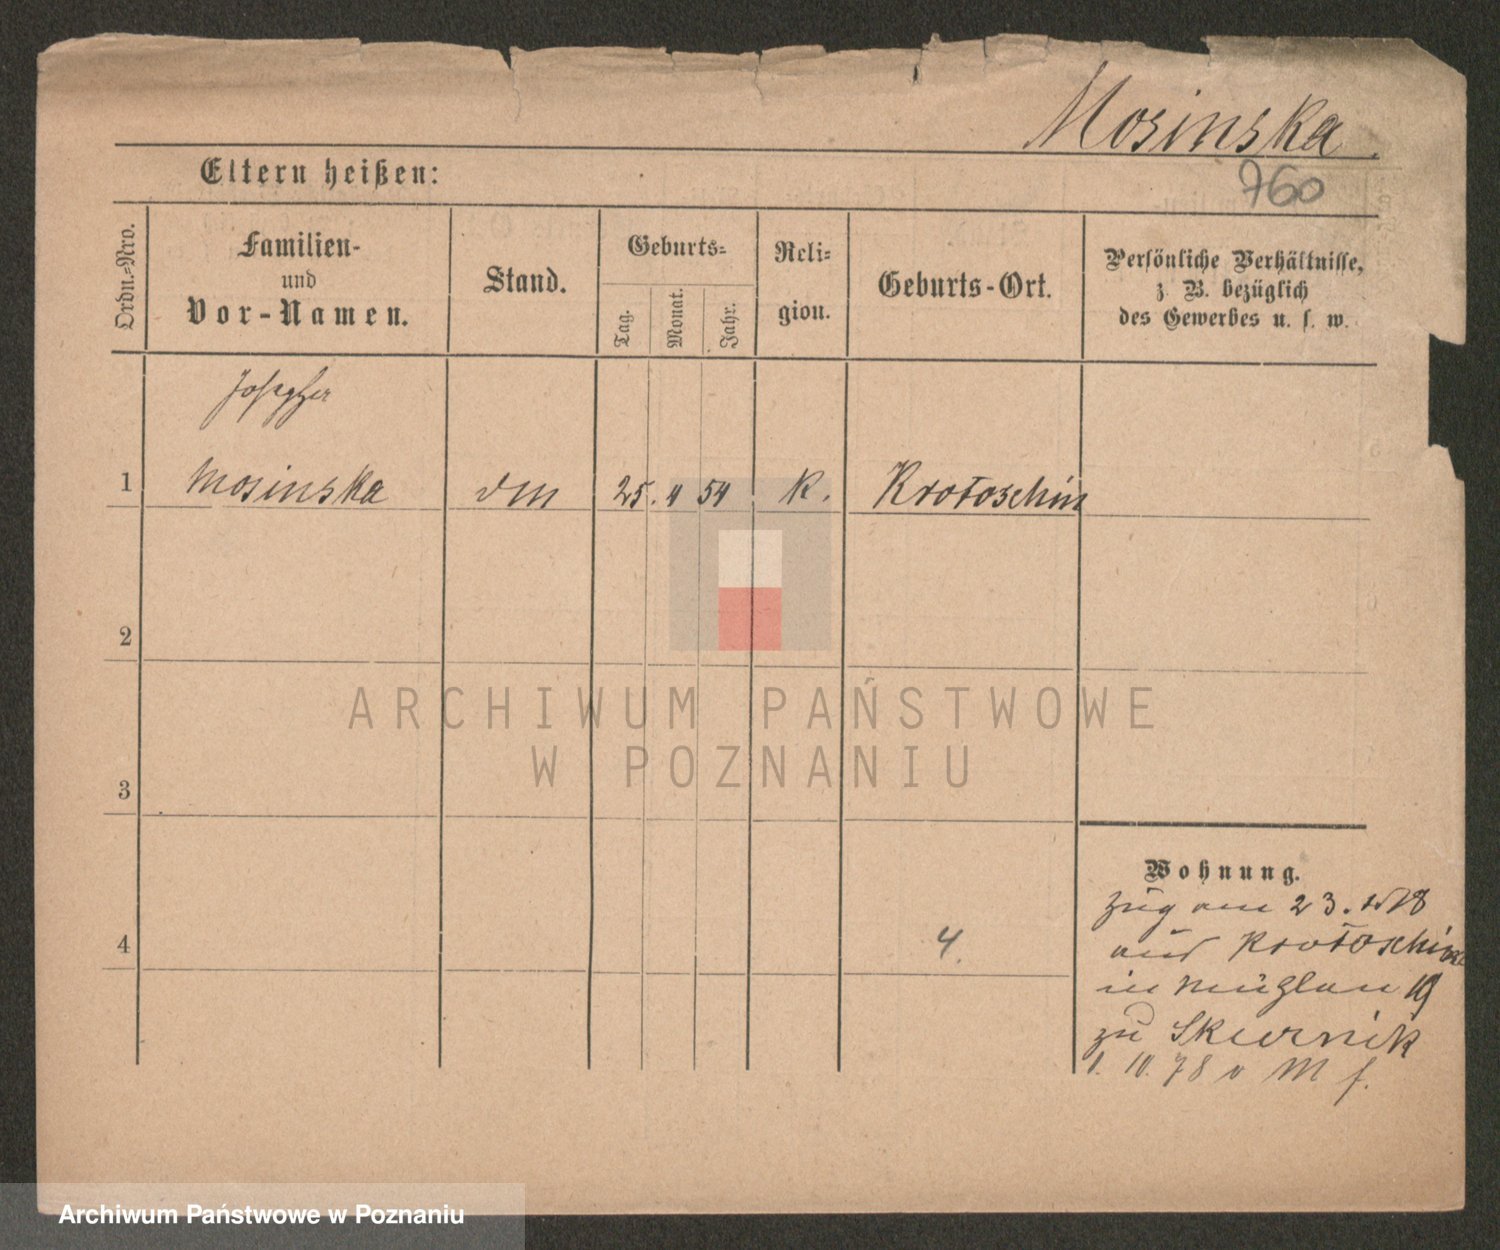 Mosinska.
760
Eltern heißen:
Ordn.=Nro.
Familien-
und
Vor-Namen.
Stand.
Geburts=
Tag.
Monat.
Jahr.
Reli=
gion.
Geburts-Ort.
Persönliche Verhältnisse,
z. B. bezüglich
des Gewerbes u. s. w.
1 Mosinska 25. 4 54 K. Krotoschin
2
3
4
4.
Wohnung.
zug am 23.
aus Krotoschin
in
zu
1. 10. 78 v M f.
ARCHIWUM PAŃSTWOWE
W POZNANIU
Archiwum Państwowe w Poznaniu